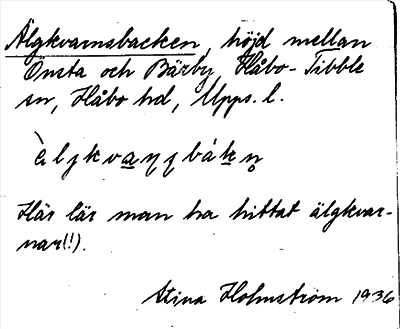 Älgkvarnsbacken, höjd mellan
Önsta och Bärby, Håbo-Tibble
sn, Håbo hd, Upps. l.
Här lär man ha hittat älgkvar-
nar(!!).
Stina Holmström 1936